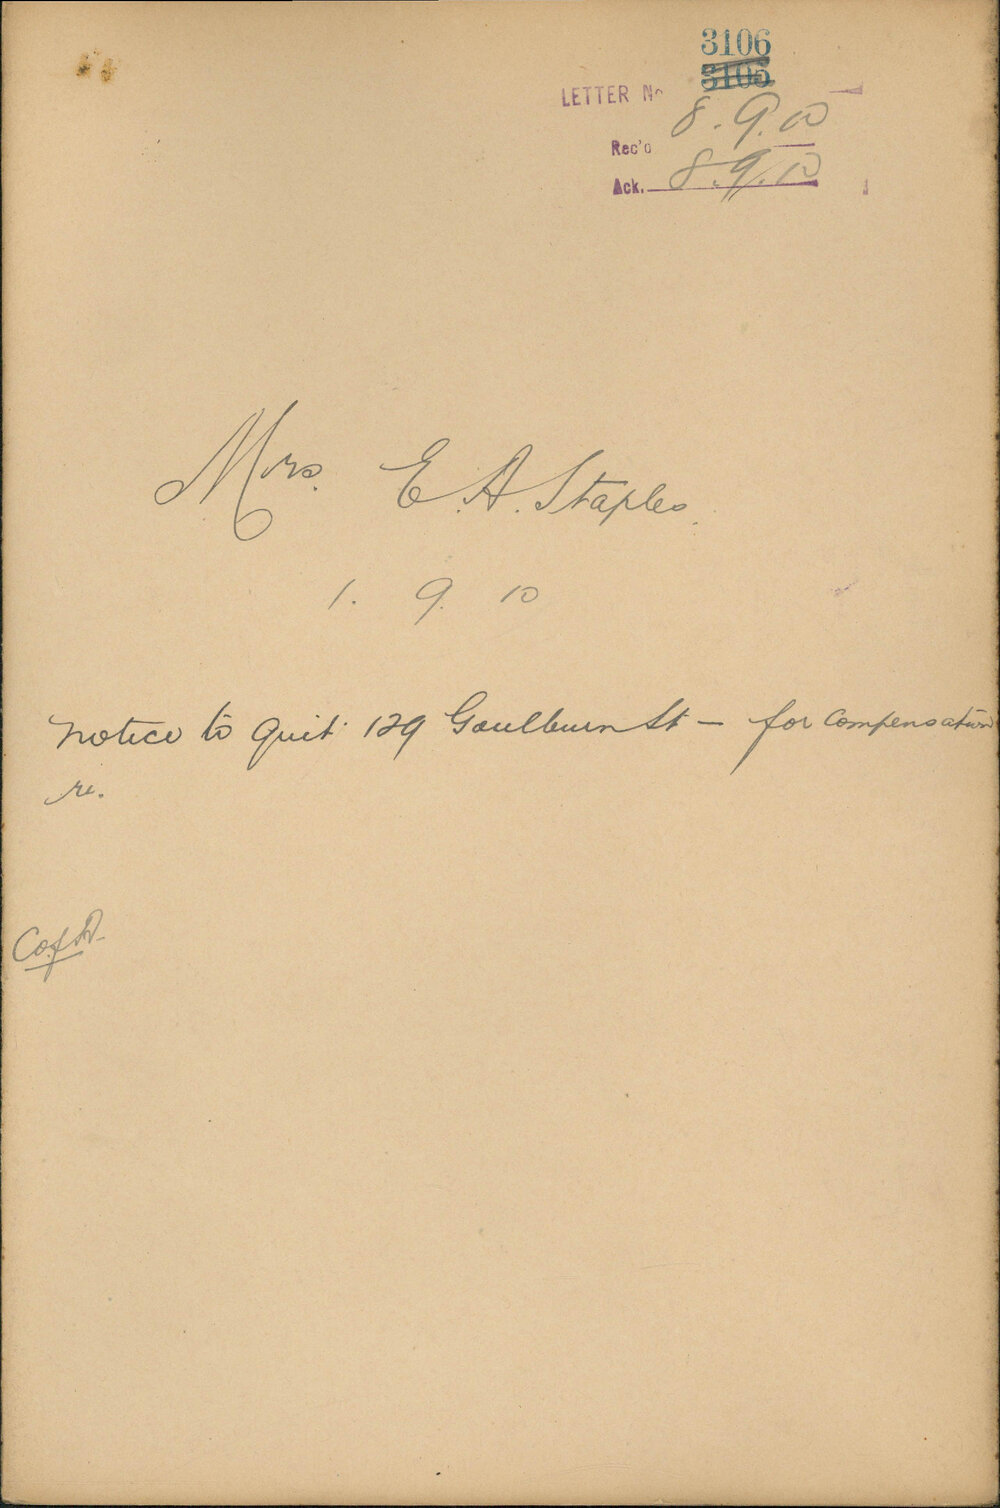 3106
3105
LETTER No
8.9.10
Rec'd
Ack. 8.9.10
Mrs. E. A. Staples.
1. 9. 10
Notice to Quit 129 Goulburn St – for compensation
re.